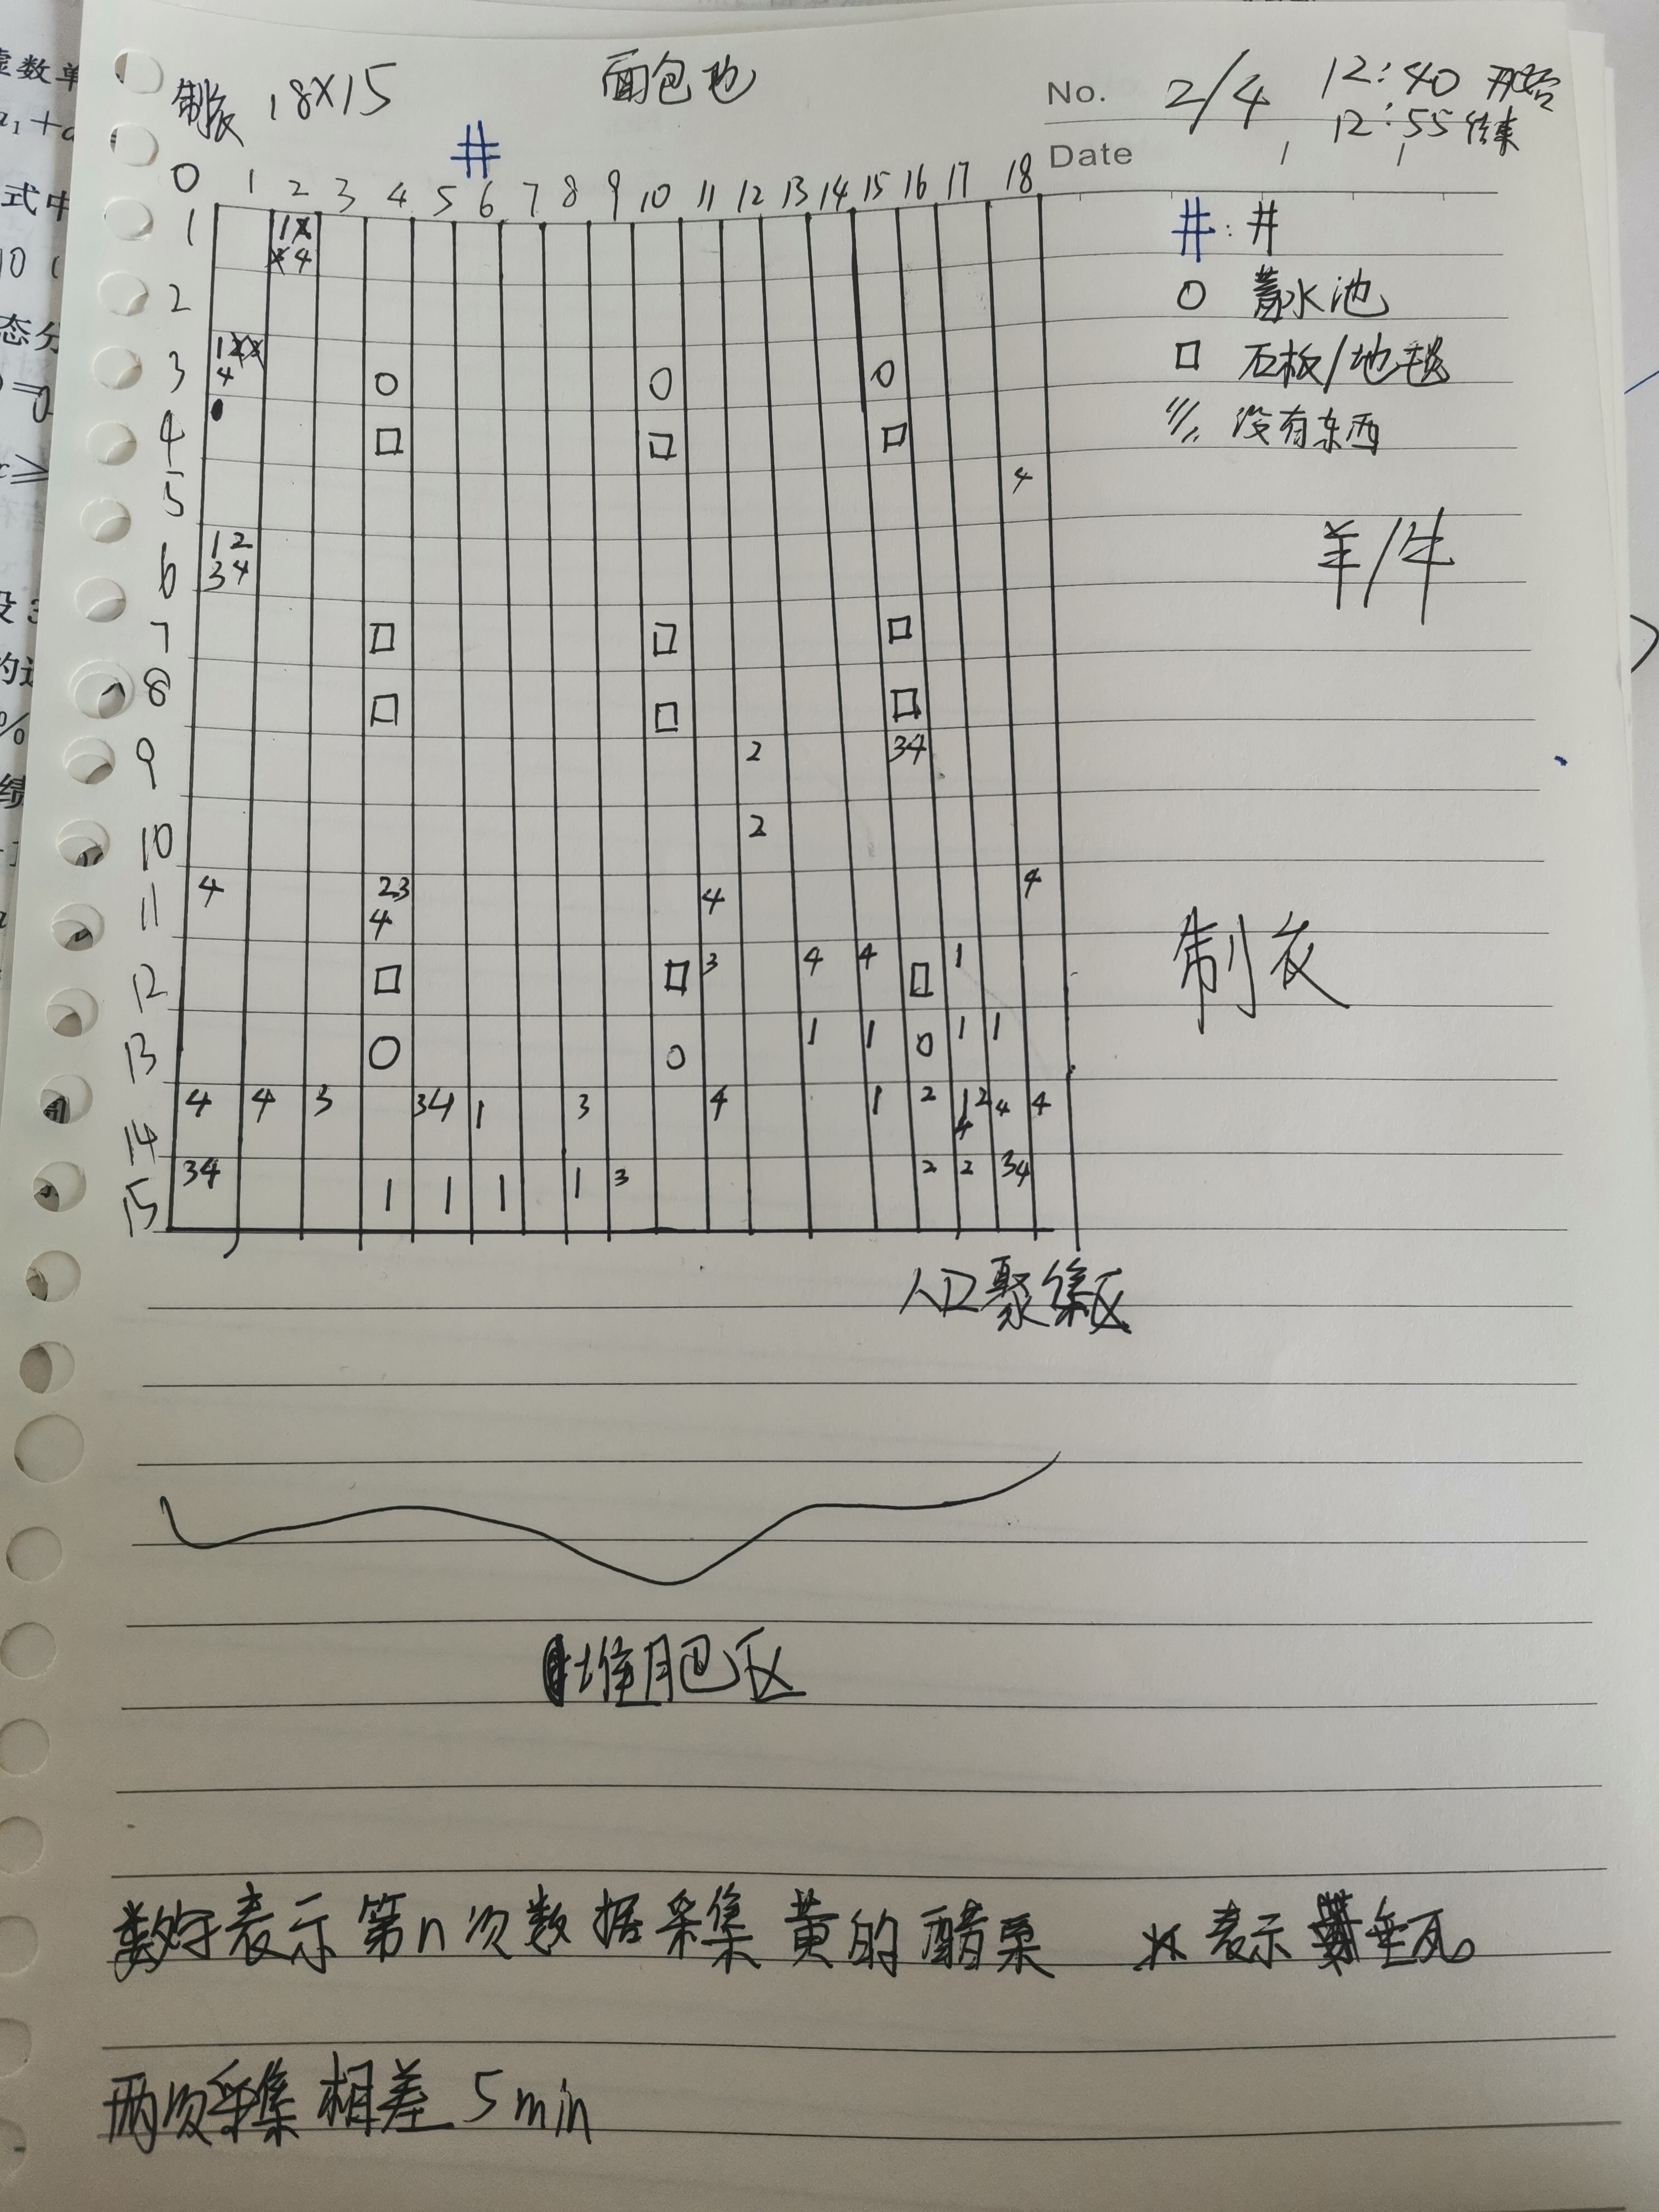 面包地
No. 2/4 12:40 开始
12:55 结束
18×15
Date / /
#
0 1 2 3 4 5 6 7 8 9 10 11 12 13 14 15 16 17 18
# : 井
○ 蓄水池
□ 石板/地毯
没有东西
羊/牛
1 1
4
2
3 1
4
4
5 4
6 1 2
3 4
7
8
9 2 34
10 2
11 4 23 4 4
4
12 3 4 4 1
13 1 1 1 1
14 4 4 3 34 1 3 4 1 2 12 4 4
4
15 34 1 1 1 1 3 2 2 34
人口聚集区
堆肥区
数字表示第n次数据采集黄的醋栗 表示
两次采集相差 5min